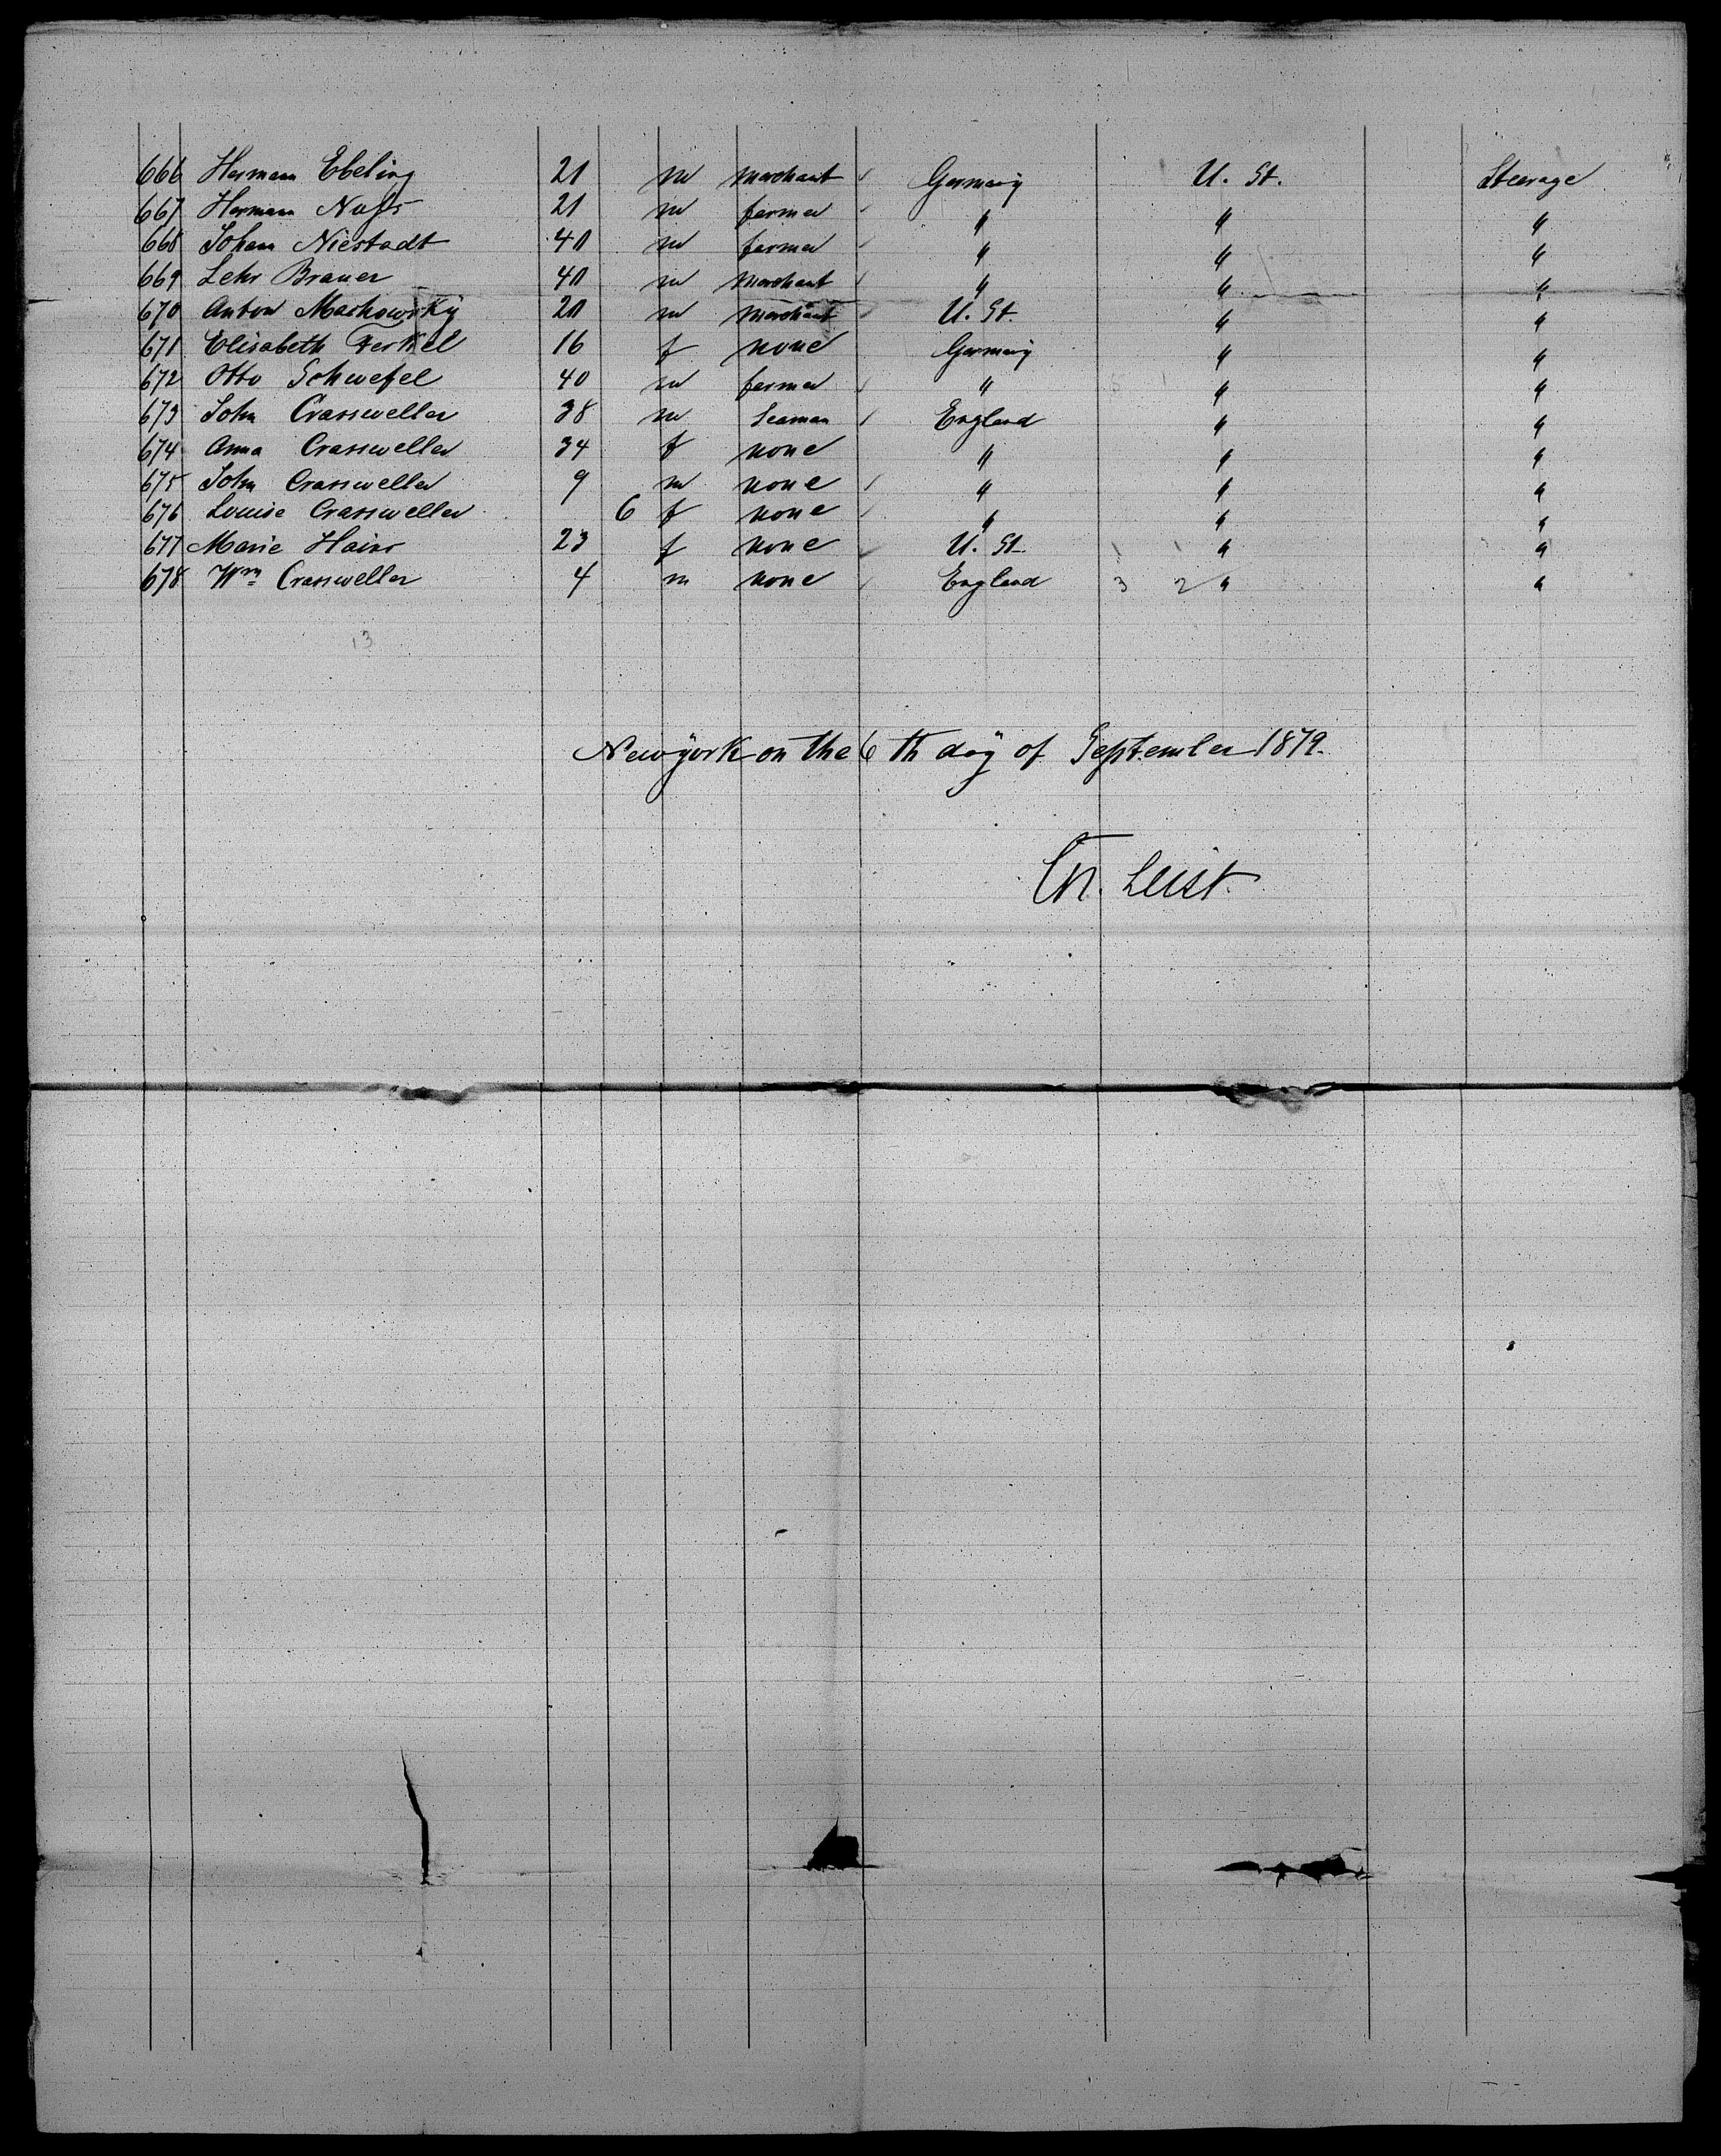 666 Herman Ebeling 21 m merchant Germany U. St. Steerage
667 Herman 21 m farmer " " "
668 Johan Niestadt 40 m farmer " " "
669 Lehr Brauer 40 m merchant " " "
670 Anton Machowsky 20 m merchant U. St. " "
671 Elisabeth Ferkel 16 f none Germany " "
672 Otto Schwefel 40 m farmer " " "
673 John Crassweller 38 m Seaman England " "
674 Anna Crassweller 34 f none " " "
675 John Crassweller 9 m none " " "
676 Louise Crassweller 6 f none " " "
677 Marie 23 f none U. St. " "
678 Wm Crassweller 4 m none England 3 2 " "
13
Newyork on the 6th day of September 1879.
Ch. Leist.